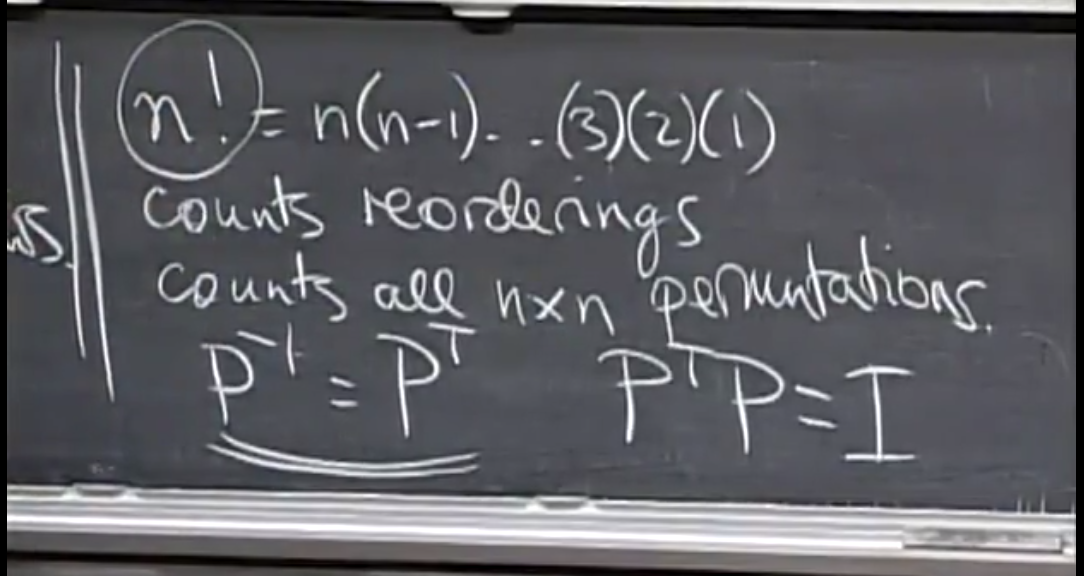 n! = n(n-1)...(3)(2)(1)
counts reorderings
counts all n×n permutations.
P⁻¹ = Pᵀ    PᵀP = I